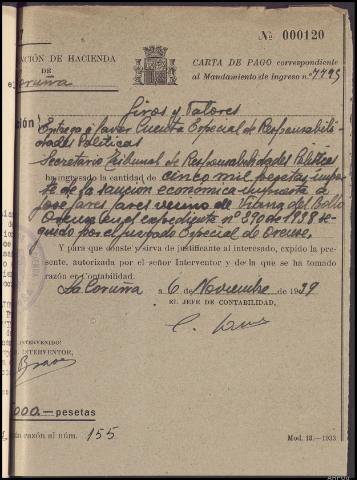 Nº 000120
ACIÓN DE HACIENDA
DE
Coruña
CARTA DE PAGO correspondiente
al Mandamiento de ingreso n.º 7795
Giros y Valores
Entrega a favor Cuenta Especial de Responsabili-
dades Políticas
Secretario Tribunal de Responsabilidades Políticas
ha ingresado la cantidad de cinco mil pesetas impor-
te de la sanción económica impuesta a
José Jares Jares vecino de Viana del Bollo
Orense en el expediente nº 390 de 1938 se-
guido por el juzgado Especial de Orense.
Y para que conste y sirva de justificante al interesado, expido la pre-
sente, autorizada por el señor Interventor y de la que se ha tomado
razón en Contabilidad.
La Coruña a 6 de Noviembre de 1939
EL JEFE DE CONTABILIDAD,
INTERVENIDO:
INTERVENTOR,
000.— pesetas
razón al núm. 155
Mod. 13.—1933